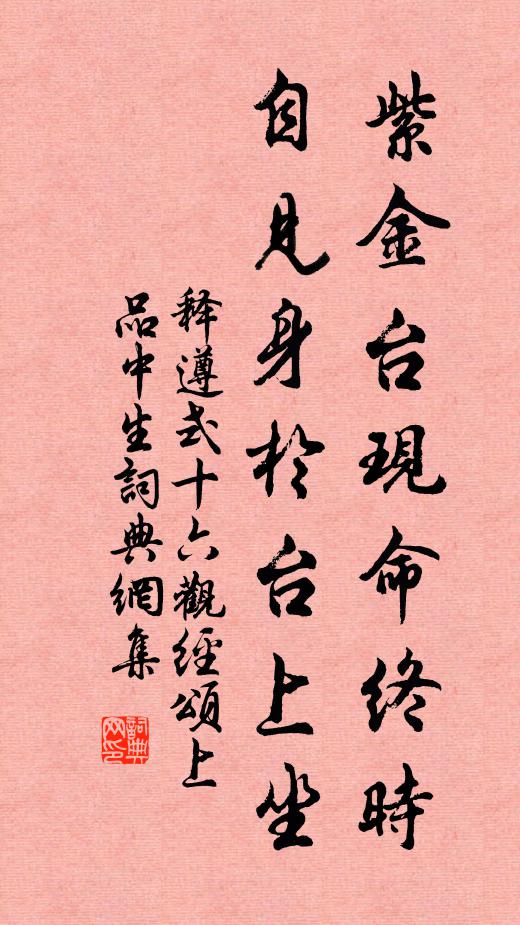 紫金台現命終時
自見身於台上坐
释遵式十六觀經頌上
品中生詞典網集
詞典網印